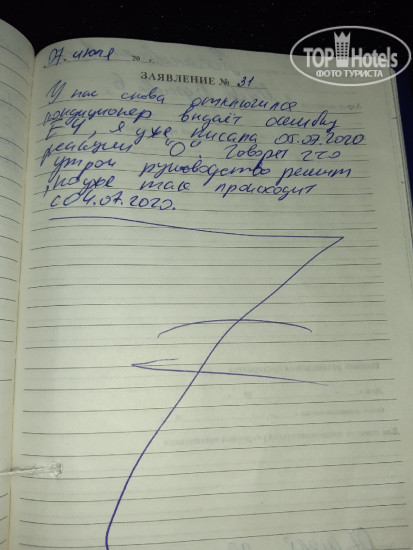 TOP Hotels
ФОТО ТУРИСТА
07. июля 20 г.
ЗАЯВЛЕНИЕ № 31
У нас снова отключился
кондиционер выдаёт ошибку
E4, я уже писала 05.07.2020
реакции "О". Говорят что
утром руководство решит
, но уже так происходит
с 04.07.2020.